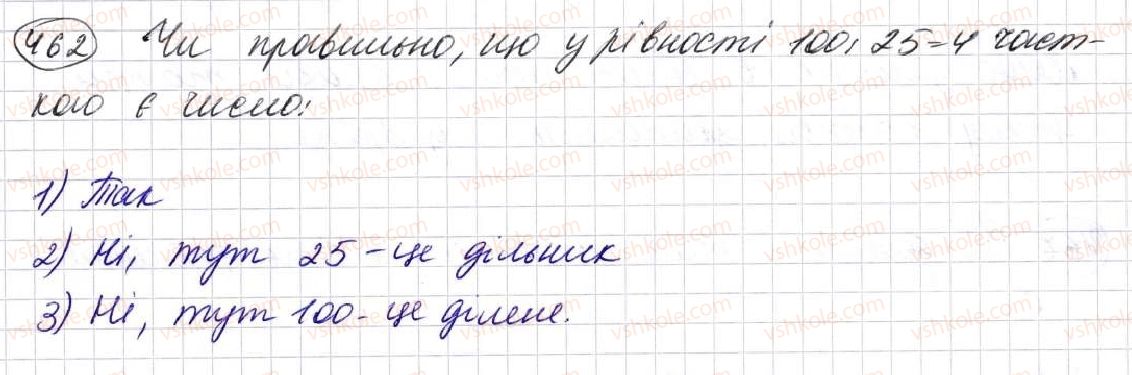 462 Чи правильно, що у рівності 100:25=4 част-
кою є число:
1) Так
2) Ні, тут 25 - це дільник
3) Ні, тут 100 - це ділене.